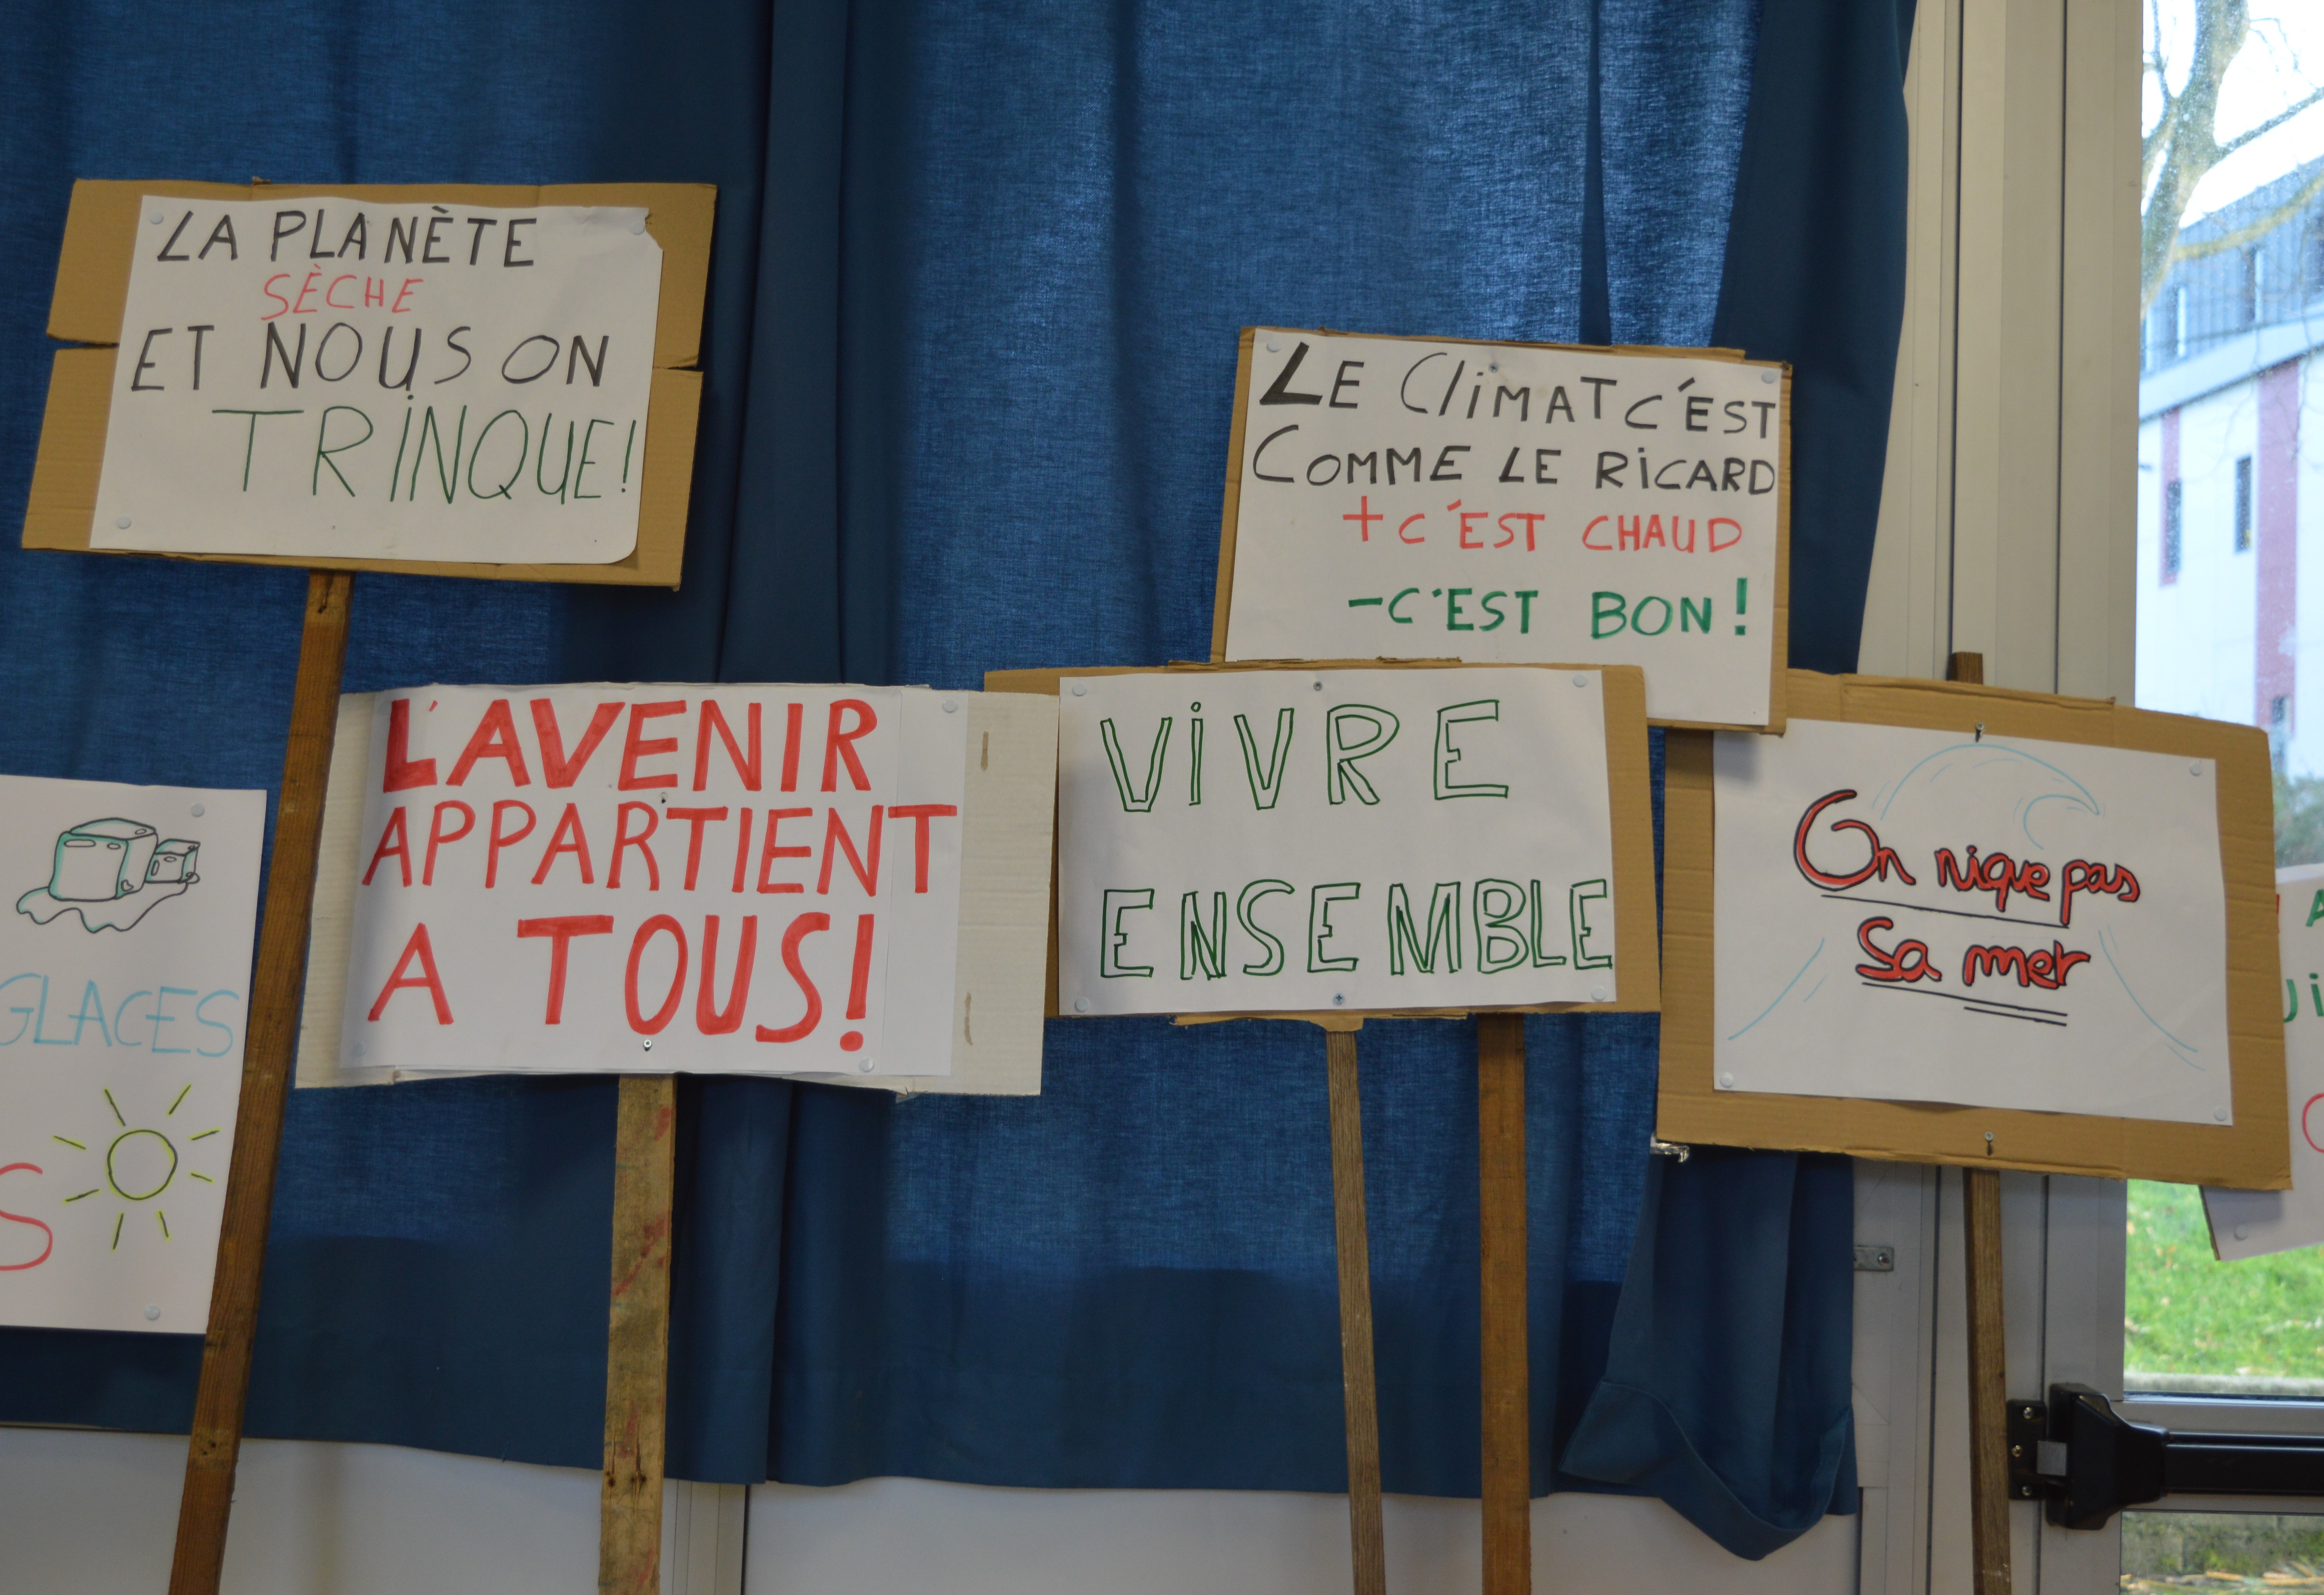 LA PLANÈTE
SÈCHE
ET NOUS ON
TRINQUE!
LE CliMAT C'EST
COMME LE RiCARD
+ C'EST CHAUD
- C'EST BON!
L'AVENIR
APPARTIENT
A TOUS!
ViVRE
ENSEMBLE
On nique pas
Sa mer
GLACES
S